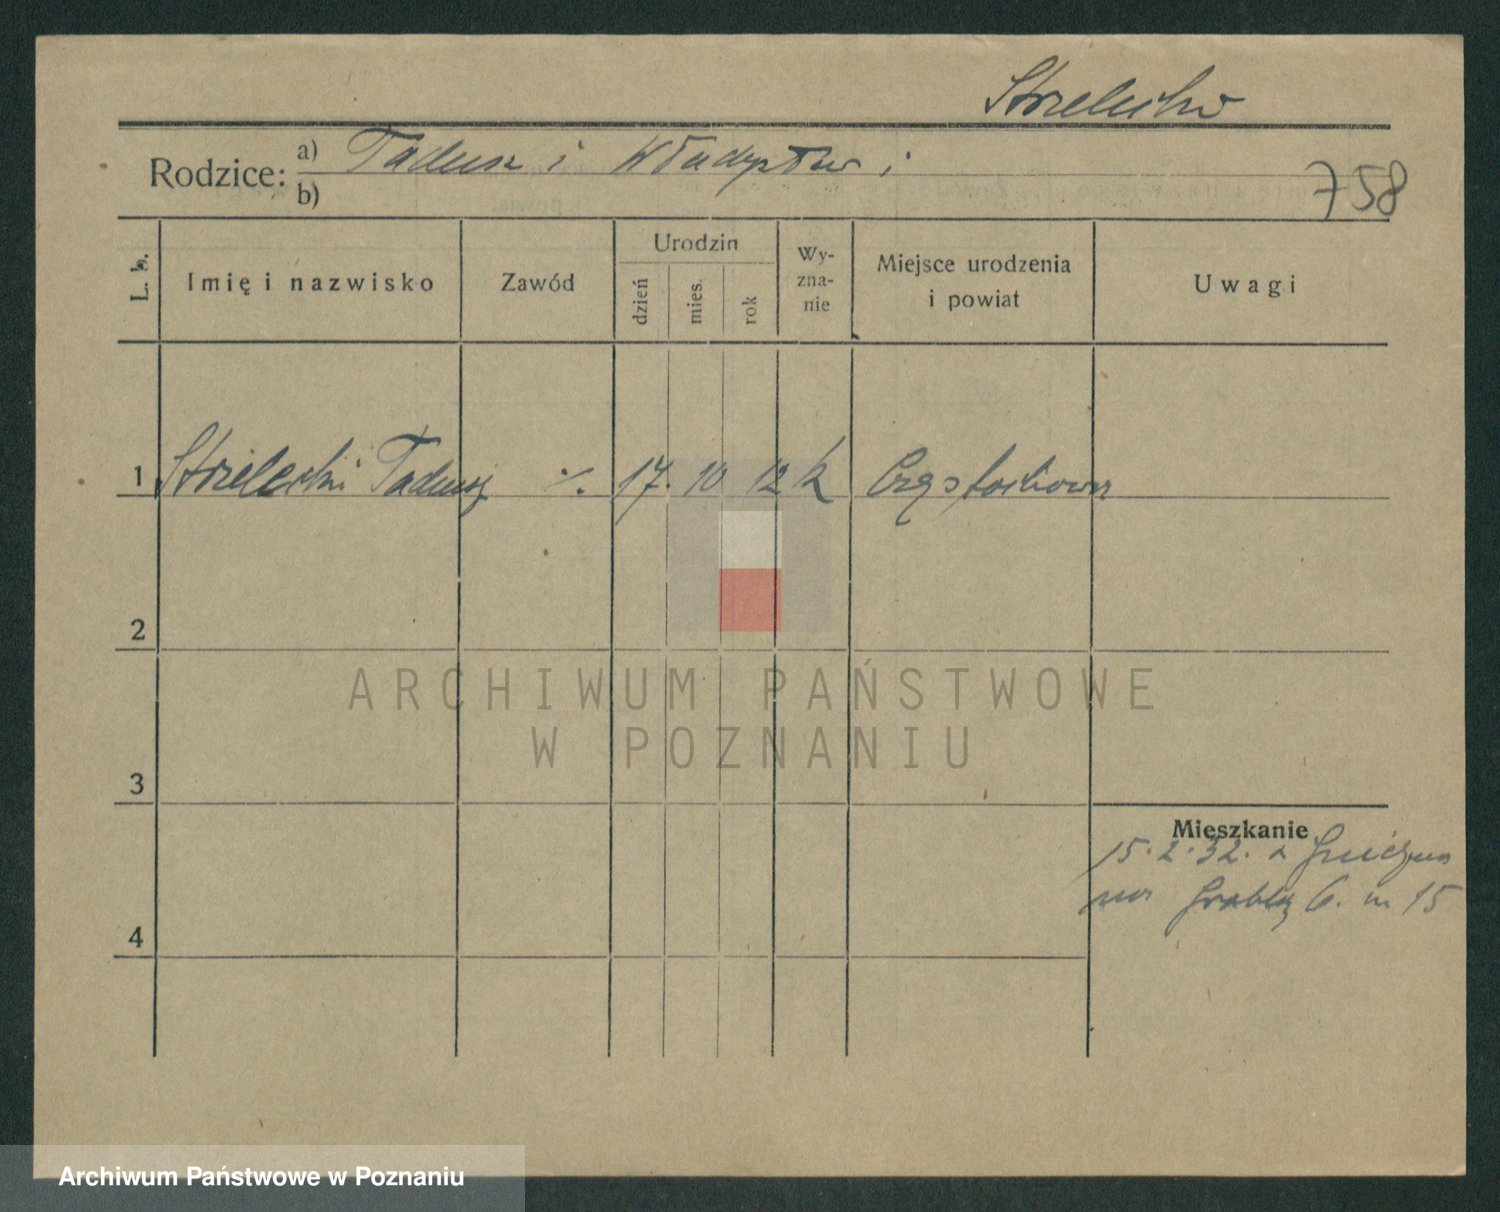 Strzelecki
Rodzice: a) Tadeusz i Władysław i
b)
758
L. b.
Imię i nazwisko
Zawód
Urodzin
dzień
mies.
rok
Wy-
zna-
nie
Miejsce urodzenia
i powiat
Uwagi
1 Strzelecki Tadeusz ·/. 17. 10 12 k Częstochowa
2
3
4
Mieszkanie
15.2.32. z
6. m 15
ARCHIWUM PAŃSTWOWE
W POZNANIU
Archiwum Państwowe w Poznaniu